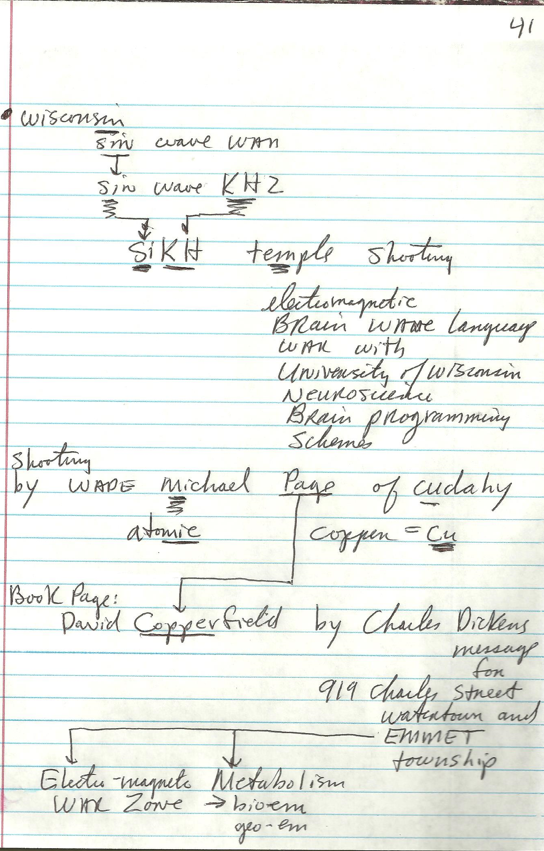 41
• Wisconsin
sin wave WAR
sin wave KHZ
SiKH temple shooting
electromagnetic
BRain WAVE language
WAR with
University of Wisconsin
Neuroscience
BRain programming
Schemes
Shooting
by WADE Michael Page of cudahy
atomic copper = Cu
Book Page:
David Copperfield by Charles Dickens
message
for
919 Charles Street
Watertown and
EMMET
township
Electro-magnetic Metabolism
WAR Zone → bio-em
geo-em